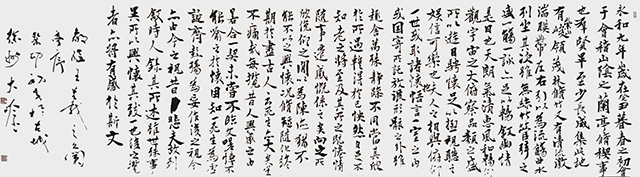 永和九年歲在癸丑暮春之初會
于會稽山陰之蘭亭脩稧事
也群賢畢至少長咸集此地
有崇山峻領茂林脩竹又有清流激
湍暎帶左右引以為流觴曲水
列坐其次雖無絲竹管弦之
盛一觴一詠亦足以暢敘幽情
是日也天朗氣清惠風和暢仰
觀宇宙之大俯察品類之盛
所以遊目騁懷足以極視聽之
娛信可樂也夫人之相與俯仰
一世或取諸懷抱悟言一室之內
或因寄所託放浪形骸之外雖
趣舍萬殊靜躁不同當其欣
於所遇暫得於己快然自足不
知老之將至及其所之既惓情
隨事遷感慨係之矣向之所
欣俛仰之間以為陳迹猶不
能不以之興懷況脩短隨化終
期於盡古人云死生亦大矣豈
不痛哉每攬昔人興感之由
若合一契未嘗不臨文嗟悼不
能喻之於懷固知一死生為虛
誕齊彭殤為妄作後之視今
亦由今之視昔悲夫故列
敘時人錄其所述雖世殊事
異所以興懷其致一也後之攬
者亦將有感於斯文
敬臨王羲之蘭
亭序
癸卯初冬於古城
徐州